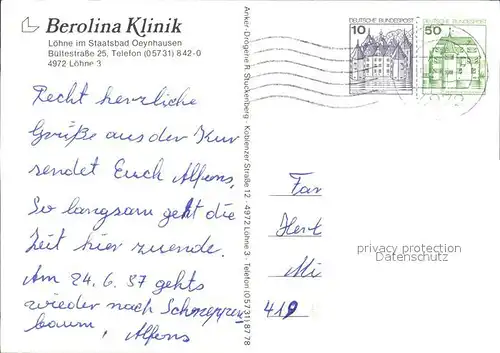 Berolina Klinik
Löhne im Staatsbad Oeynhausen
Bültestraße 25, Telefon (05731) 842-0
4972 Löhne 3
Recht herzliche
Grüße aus der Kur
sendet Euch Alfons,
So langsam geht die
Zeit hier zuende.
Am 24.6.87 gehts
wieder nach
baum, Alfons
Anker-Drogerie R. Stuckenberg - Koblenzer Straße 12 - 4972 Löhne 3 - Telefon (05731) 8778
10
DEUTSCHE BUNDESPOST
50
DEUTSCHE BUNDESPOST
Fam
Hert
Mi
419
privacy protection
Datenschutz